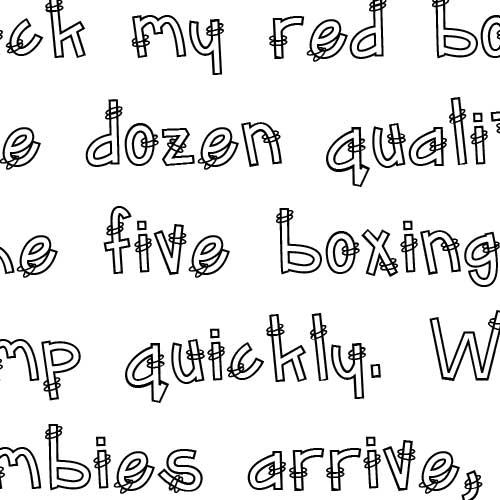 ck my red bo
e dozen qualit
he five boxing
mp quickly. W
mbies arrive,